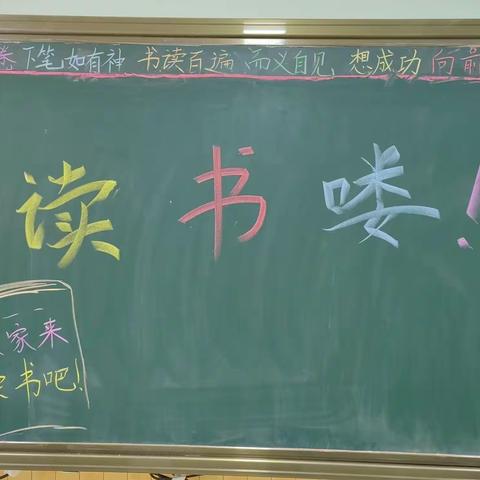 卷 下笔如有神 书读百遍 而义自见 想成功 向前
读书喽!
家来
书吧!